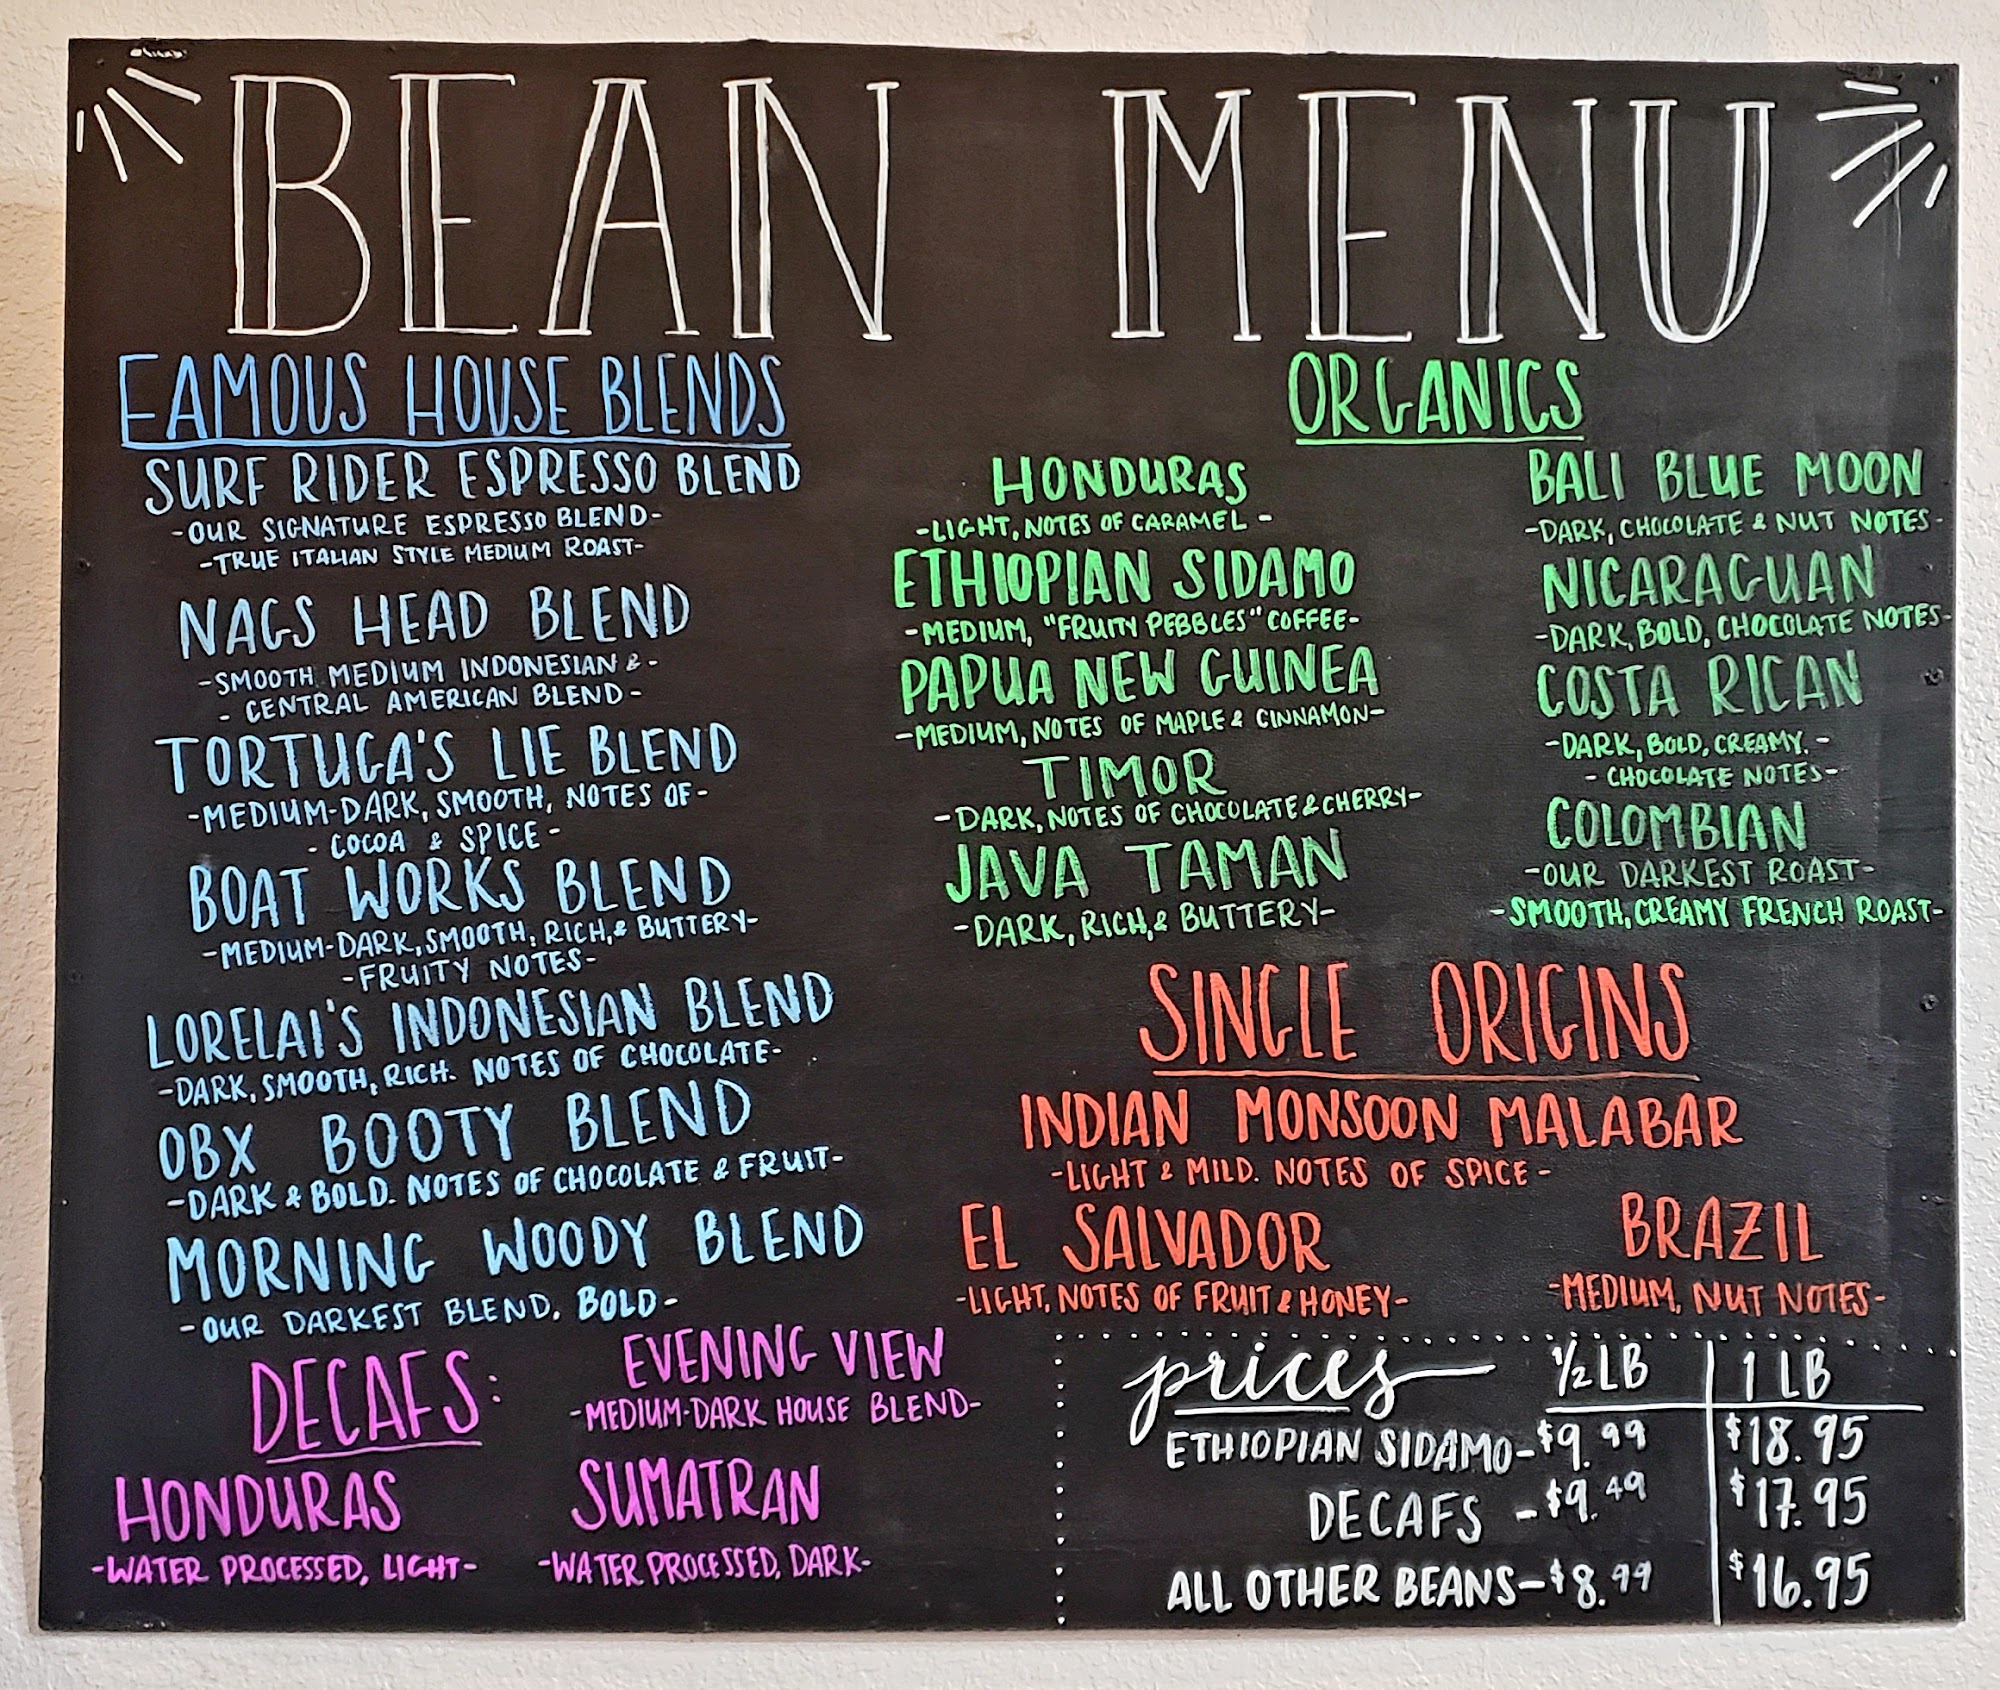 BEAN MENU
FAMOUS HOUSE BLENDS
SURF RIDER ESPRESSO BLEND
-OUR SIGNATURE ESPRESSO BLEND-
-TRUE ITALIAN STYLE MEDIUM ROAST-
NAGS HEAD BLEND
-SMOOTH MEDIUM INDONESIAN & -
- CENTRAL AMERICAN BLEND -
TORTUGA'S LIE BLEND
-MEDIUM-DARK, SMOOTH, NOTES OF-
- COCOA & SPICE -
BOAT WORKS BLEND
-MEDIUM-DARK, SMOOTH, RICH, & BUTTERY-
-FRUITY NOTES-
LORELAI'S INDONESIAN BLEND
-DARK, SMOOTH, RICH. NOTES OF CHOCOLATE-
OBX BOOTY BLEND
-DARK & BOLD. NOTES OF CHOCOLATE & FRUIT-
MORNING WOODY BLEND
-OUR DARKEST BLEND, BOLD-
DECAFS:
EVENING VIEW
-MEDIUM-DARK HOUSE BLEND-
HONDURAS
-WATER PROCESSED, LIGHT-
SUMATRAN
-WATER PROCESSED, DARK-
ORGANICS
HONDURAS
-LIGHT, NOTES OF CARAMEL -
ETHIOPIAN SIDAMO
-MEDIUM, "FRUITY PEBBLES" COFFEE-
PAPUA NEW GUINEA
-MEDIUM, NOTES OF MAPLE & CINNAMON-
TIMOR
-DARK, NOTES OF CHOCOLATE & CHERRY-
JAVA TAMAN
-DARK, RICH, & BUTTERY-
BALI BLUE MOON
-DARK, CHOCOLATE & NUT NOTES-
NICARAGUAN
-DARK, BOLD, CHOCOLATE NOTES-
COSTA RICAN
-DARK, BOLD, CREAMY, -
- CHOCOLATE NOTES-
COLOMBIAN
-OUR DARKEST ROAST-
-SMOOTH, CREAMY FRENCH ROAST-
SINGLE ORIGINS
INDIAN MONSOON MALABAR
-LIGHT & MILD. NOTES OF SPICE -
EL SALVADOR
-LIGHT, NOTES OF FRUIT & HONEY-
BRAZIL
-MEDIUM, NUT NOTES-
prices 1/2 LB 1 LB
ETHIOPIAN SIDAMO-$9.99 $18.95
DECAFS -$9.49 $17.95
ALL OTHER BEANS-$8.99 $16.95